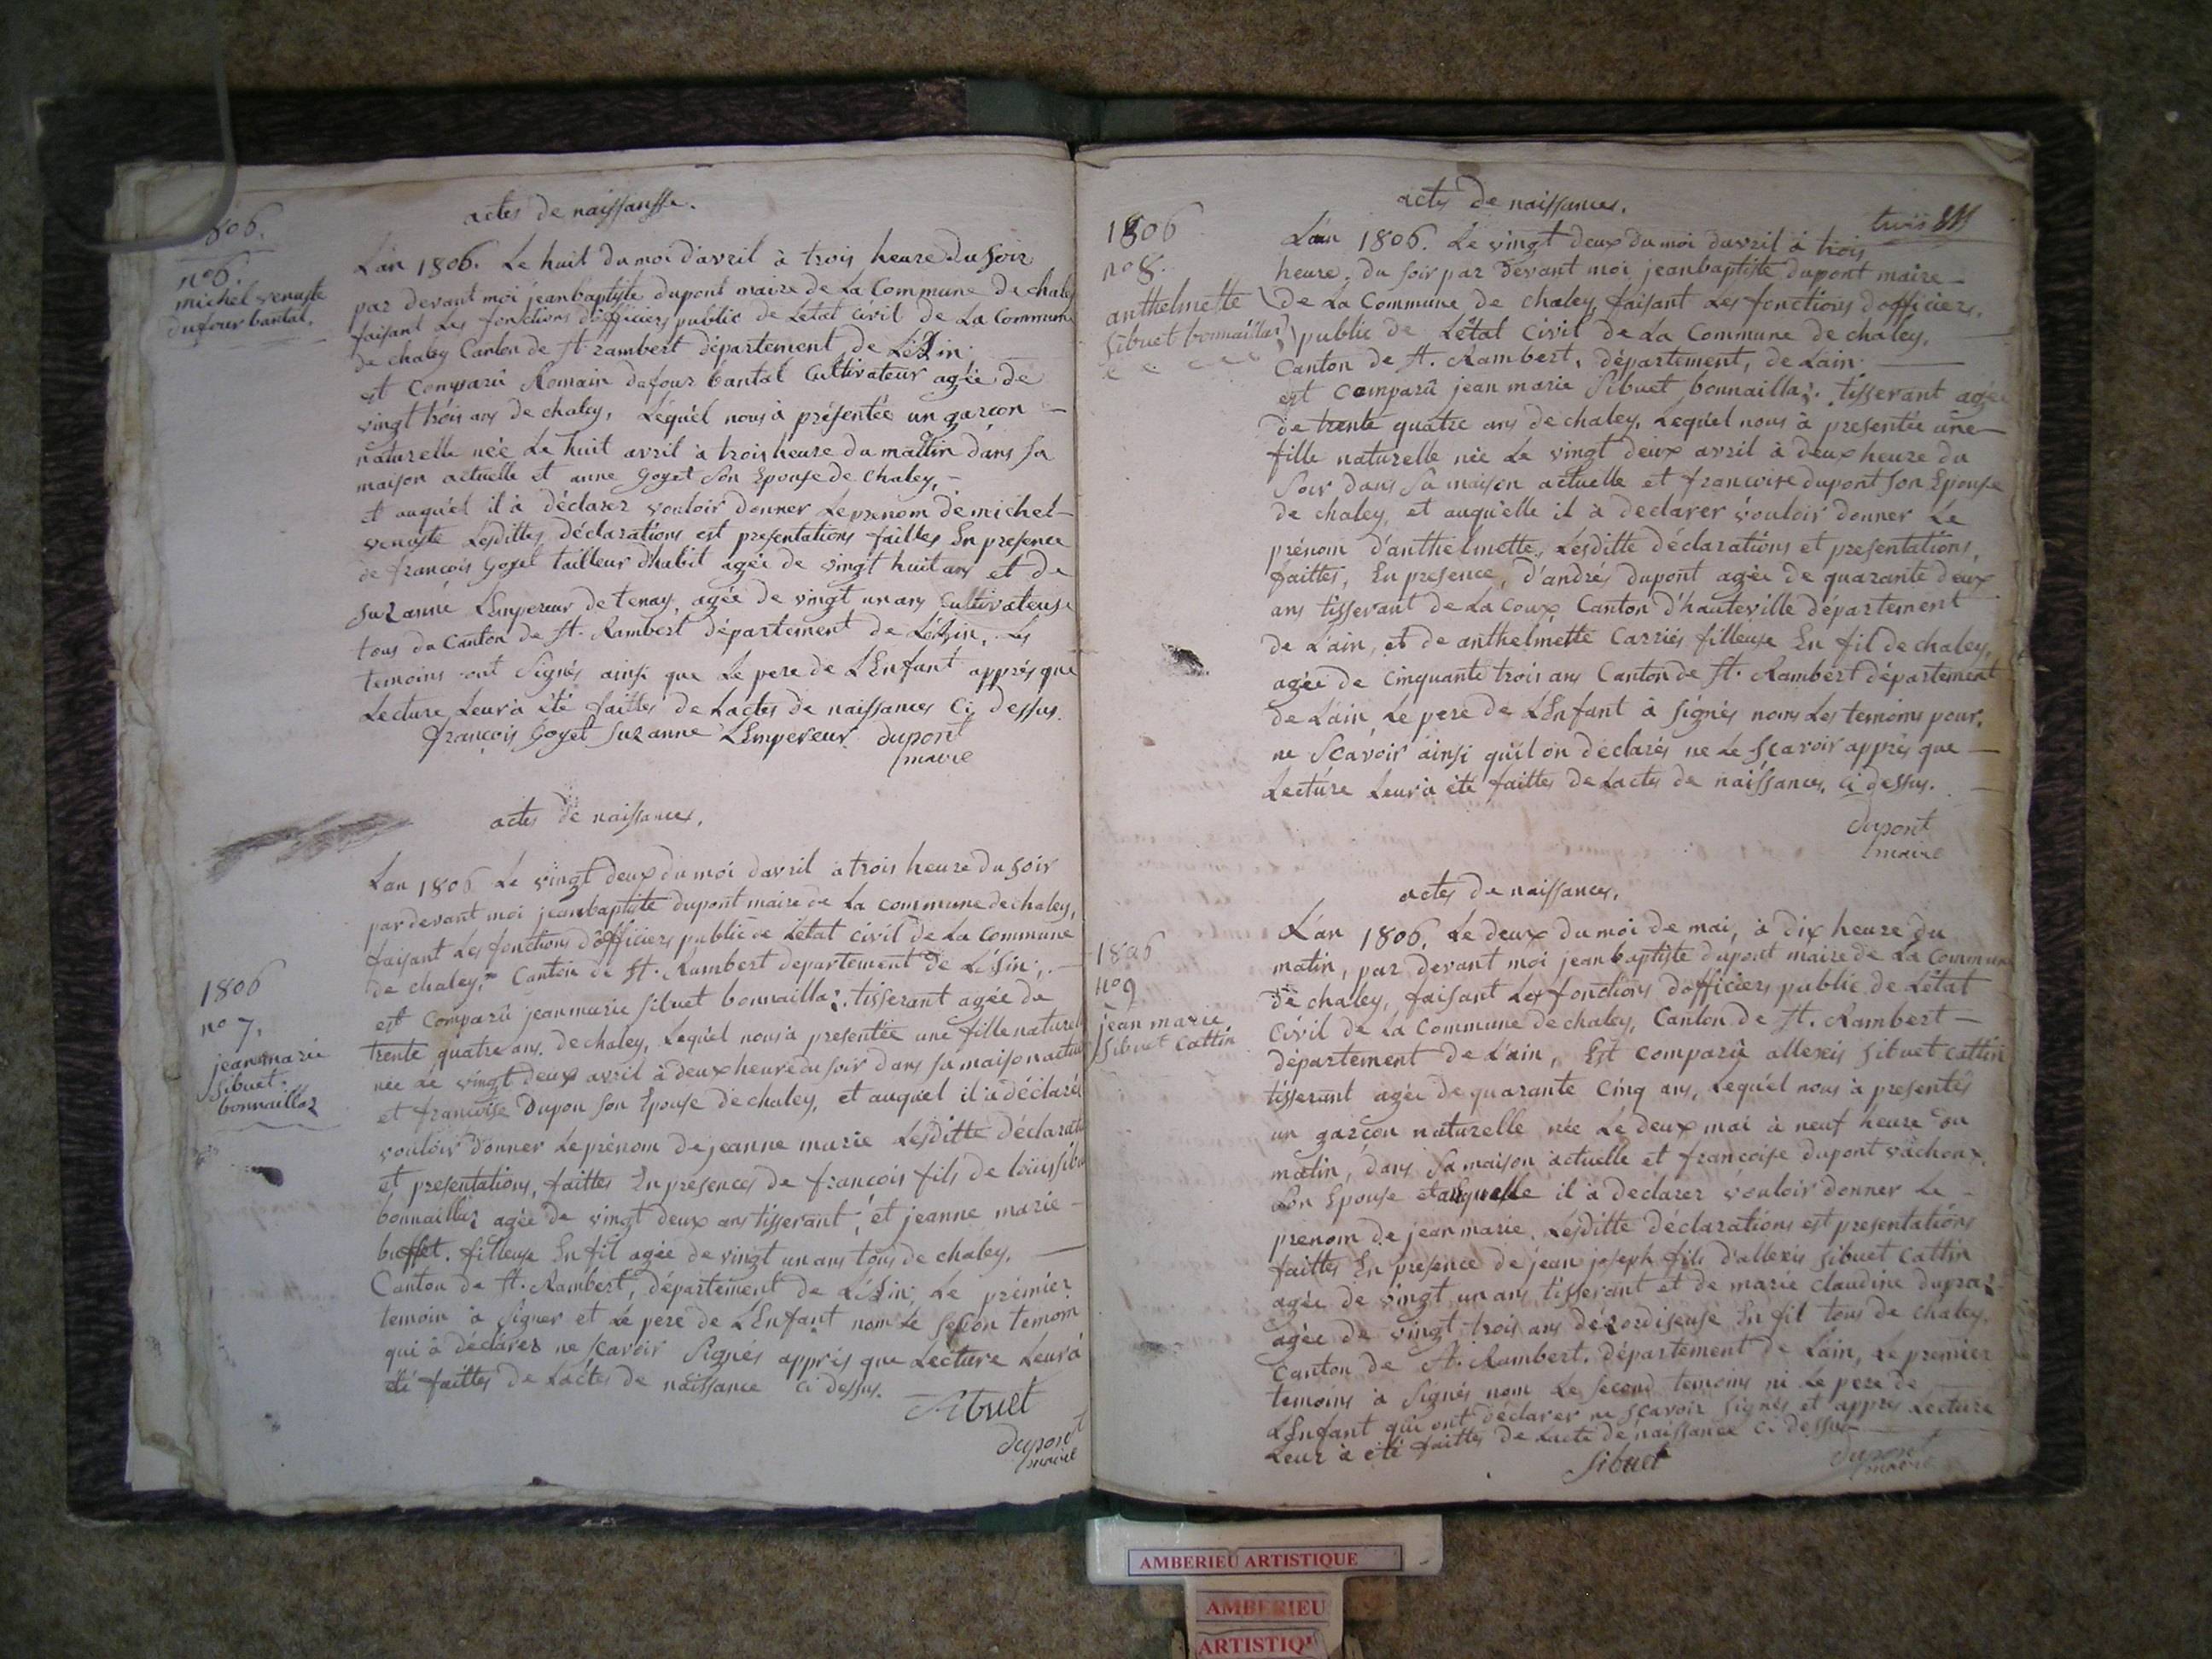 actes de naissansse.
806.
n° 6.
michel venuste
dufour bantal.
Lan 1806. Le huit du moi davril à trois heure du soir
par devant moi jeanbaptiste dupont maire de La Commune de chaley
faisant Les fonctions dofficiers public de Létat Civil de La Commune
de chaley Canton de st. rambert département de Léain
est Comparû Romain dufour bantal Cultivateur agée de
vingt trois ans de chaley, Lequél nous à présentée un garçon —
naturelle née Le huit avril à trois heure du mattin dans sa
maison actuelle et anne goyet son Epouse de chaley, —
et auquél il à déclarez vouloir donner Le prenom de michel —
venuste Lesdittes déclarations est presentations faittes En presence
de françois goyet tailleur d'habit agée de vingt huit ans et de
suzanne L'Empereur de tenay, agée de vingt un ans Cultivateuse
tous du Canton de st. Rambert département de Léain, Les
temoins ont Signés ainsi que Le pere de L'Enfant apprés que
Lecture Leur à été faittes de Lactes de naissances Ci dessus.
françois Goyet suzanne LEmpereur dupont
maire
actes de naissances.
1806
n° 7.
jeanmarie
sibuet.
bonnaillaz
Lan 1806 Le vingt deux du moi davril à trois heure du soir
par devant moi jeanbaptiste dupont maire de La commune de chaley,
faisant Les fonctions dofficiers public de Létat civil de La Commune
de chaley, Canton de st. Rambert departement de Léain, —
est Comparû jeanmarie sibuet bonnaillaz. tisserant agée de
trente quatre ans. de chaley, Lequél nous à presentée une fille naturel
née Le vingt deux avril à deux heure du soir dans sa maison actue
et francoise Dupon son Epouse de chaley, et auquel il à déclarés
vouloir donner Le prénom de jeanne marie Lesditte déclarati
et presentations, faittes En presences de francois fils de louis sibu
bonnaillaz agée de vingt deux ans tisserant, et jeanne marie —
buffet. filleuse En fil agée de vingt un ans tous de chaley, —
Canton de st. Rambert, département de Léain, Le prémier
temoin à Signer et Le pere de L'Enfant nom Le segon temoin
qui à déclarez ne scavoir Signés apprés que Lecture Leur à
été faittes de Lactes de naissance Ci dessus.
Sibuet
dupont
maire
actes de naissances.
trois
1806
n° 8.
anthelmette
sibuet bonnaillaz
L'an 1806. Le vingt deux du moi davril à trois
heure, du soir par devant moi jeanbaptiste dupont maire —
de La Commune de chaley, faisant Les fonctions dofficiers,
public de Létat Civil de La Commune de chaley,
Canton de st. Rambert, département, de Lain —
est Comparû jean marie Sibuet bonnaillaz. tisserant agée
de trente quatre ans de chaley, Lequél nous à presentée une —
fille naturelle née Le vingt deux avril à deux heure du
Soir dans sa maison actuelle et francoise dupont son Epouse
de chaley, et auqu'elle il à declarer vouloir donner Le
prénom d'anthelmette, Lesditte déclarations et presentations,
faittes, En presence, d'andrés dupont agée de quarante deux
ans tisserant de La Coux Canton d'hauteville département
de Lain, et de anthelmette Carriés filleuse En fil de chaley,
agée de Cinquante trois ans Canton de st. Rambert département
de Lain, Le pere de L'Enfant à signés noms Les temoins pour,
ne Scavoir ainsi qu'il on declarés ne Le Scavoir apprés que —
Lecture Leur à été faittes de Lactes de naissances, Ci dessus.
dupont
maire
actes de naissances.
1806
n° 9
jean marie
sibuet Cattin
L'an 1806, Le deux du moi de mai, à dix heure du
matin, par devant moi jeanbaptiste dupont maire de La Commune
de chaley, faisant Les fonctions dofficiers public de Létat
Civil de La Commune de chaley, Canton de st. Rambert —
département de Lain, Est comparû allexis sibuet cattin
tisserant agée de quarante Cinq ans, Lequél nous à presentés
un garçon naturelle née Le deux mai à neuf heure du
matin, dans sa maison actuelle et francoise dupont vachoux,
son Epouse et auquelle il à declarez vouloir donner Le —
prenom de jean marie, Lesditte déclarations est presentations
faittes En presence de jean joseph fils d'allexis sibuet Cattin
agée de vingt un ans tisserant et de marie claudine dupraz
agée de vingt trois ans dézordiseuse En fil tous de chaley
Canton de st. Rambert. département de Lain, Le premier
temoins à Signés nom Le second temoins ni Le pere de
L'Enfant qui ont déclarer ne scavoir signés et appres Lecture
Leur à été faittes de Lacte de naissance Ci dessus
Sibuet
dupont
maire
AMBERIEU ARTISTIQUE
AMBERIEU
ARTISTIQU